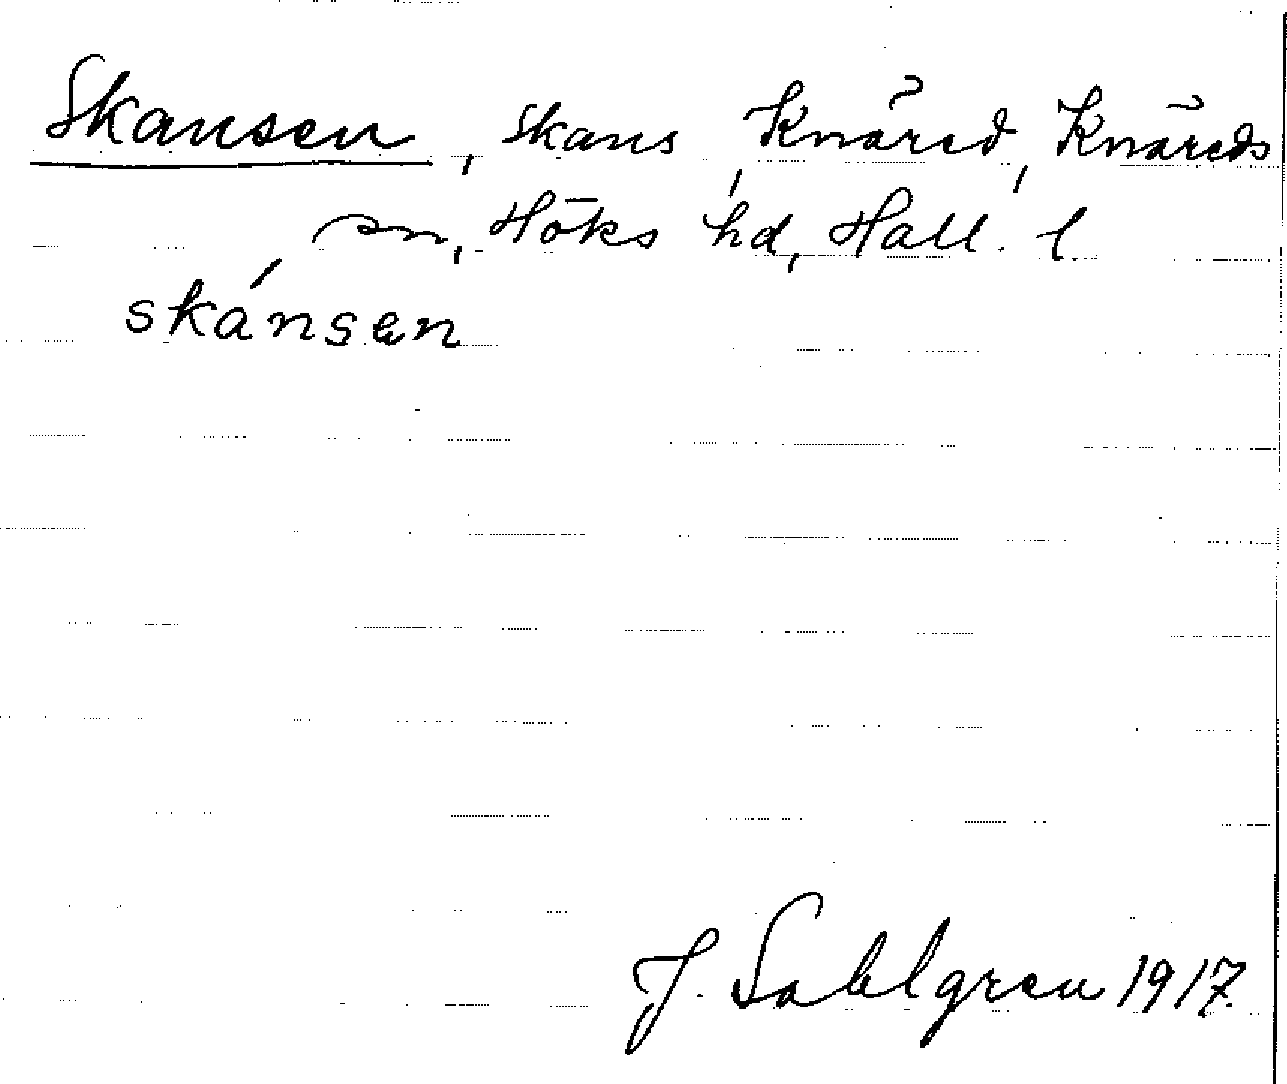 Skansen, skans, Knäred, Knäreds
sn, Höks hd, Hall. l
skánsen
J. Sahlgren 1917.